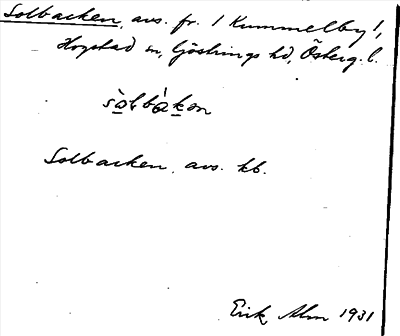 Solbacken, avs. fr. 1 Kummelby 1,
Hogstad sn, Göstrings hd, Österg. l.
sòlbàkən
Solbacken, avs. kb.
Erik Alm 1931